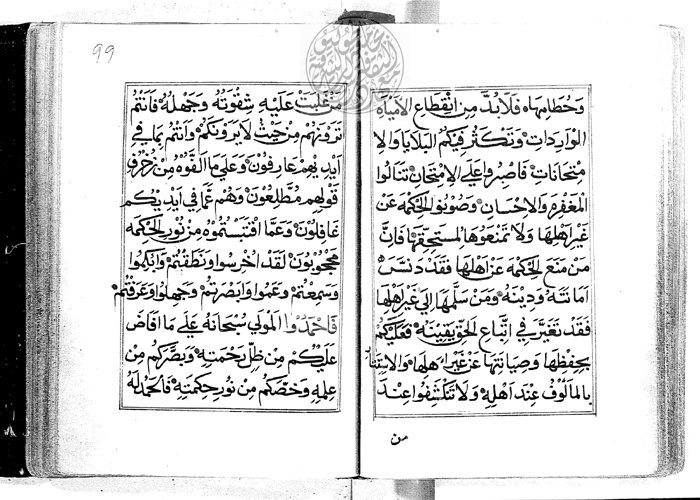 وحطامها فلا بد من انقطاع الامياه
الواردات وتكثر فيكم البلايا والا
متحانات فاصبروا علي الامتحان تنالوا
المغفرة والاحسان وصونوا الحكمة عن
غير اهلها ولا تمنعوها لمستحقيها فان
من منع الحكمة عن اهلها فقد دنس
امانته ودينه ومن سلمها الي غير اهلها
فقد تغير في اتباع الحق يقينه فعليكم
بحفظها وصيانتها عن غير اهلها والاستتار
بالمألوف عند اهله ولا تتكشفوا عند
من
99
من غلبت عليه شقوته وجهله فانتم
ترونهم من حيث لا يرونكم وانتم بما في
ايديهم عارفون وعلي ما القوه من زخرف
قولهم مطلعون وهم عما في ايديكم
غافلون وعما اقتبستموه من نور الحكمه
محجوبون لقد اخرسوا ونطقتم وابكموا
وسمعتم وعموا وابصرتم وجهلوا وعرفتم
فاحمدوا المولي سبحانه علي ما افاض
عليكم من ظل رحمته وبصركم من
علمه وخصكم من نور حكمته فالحمد له